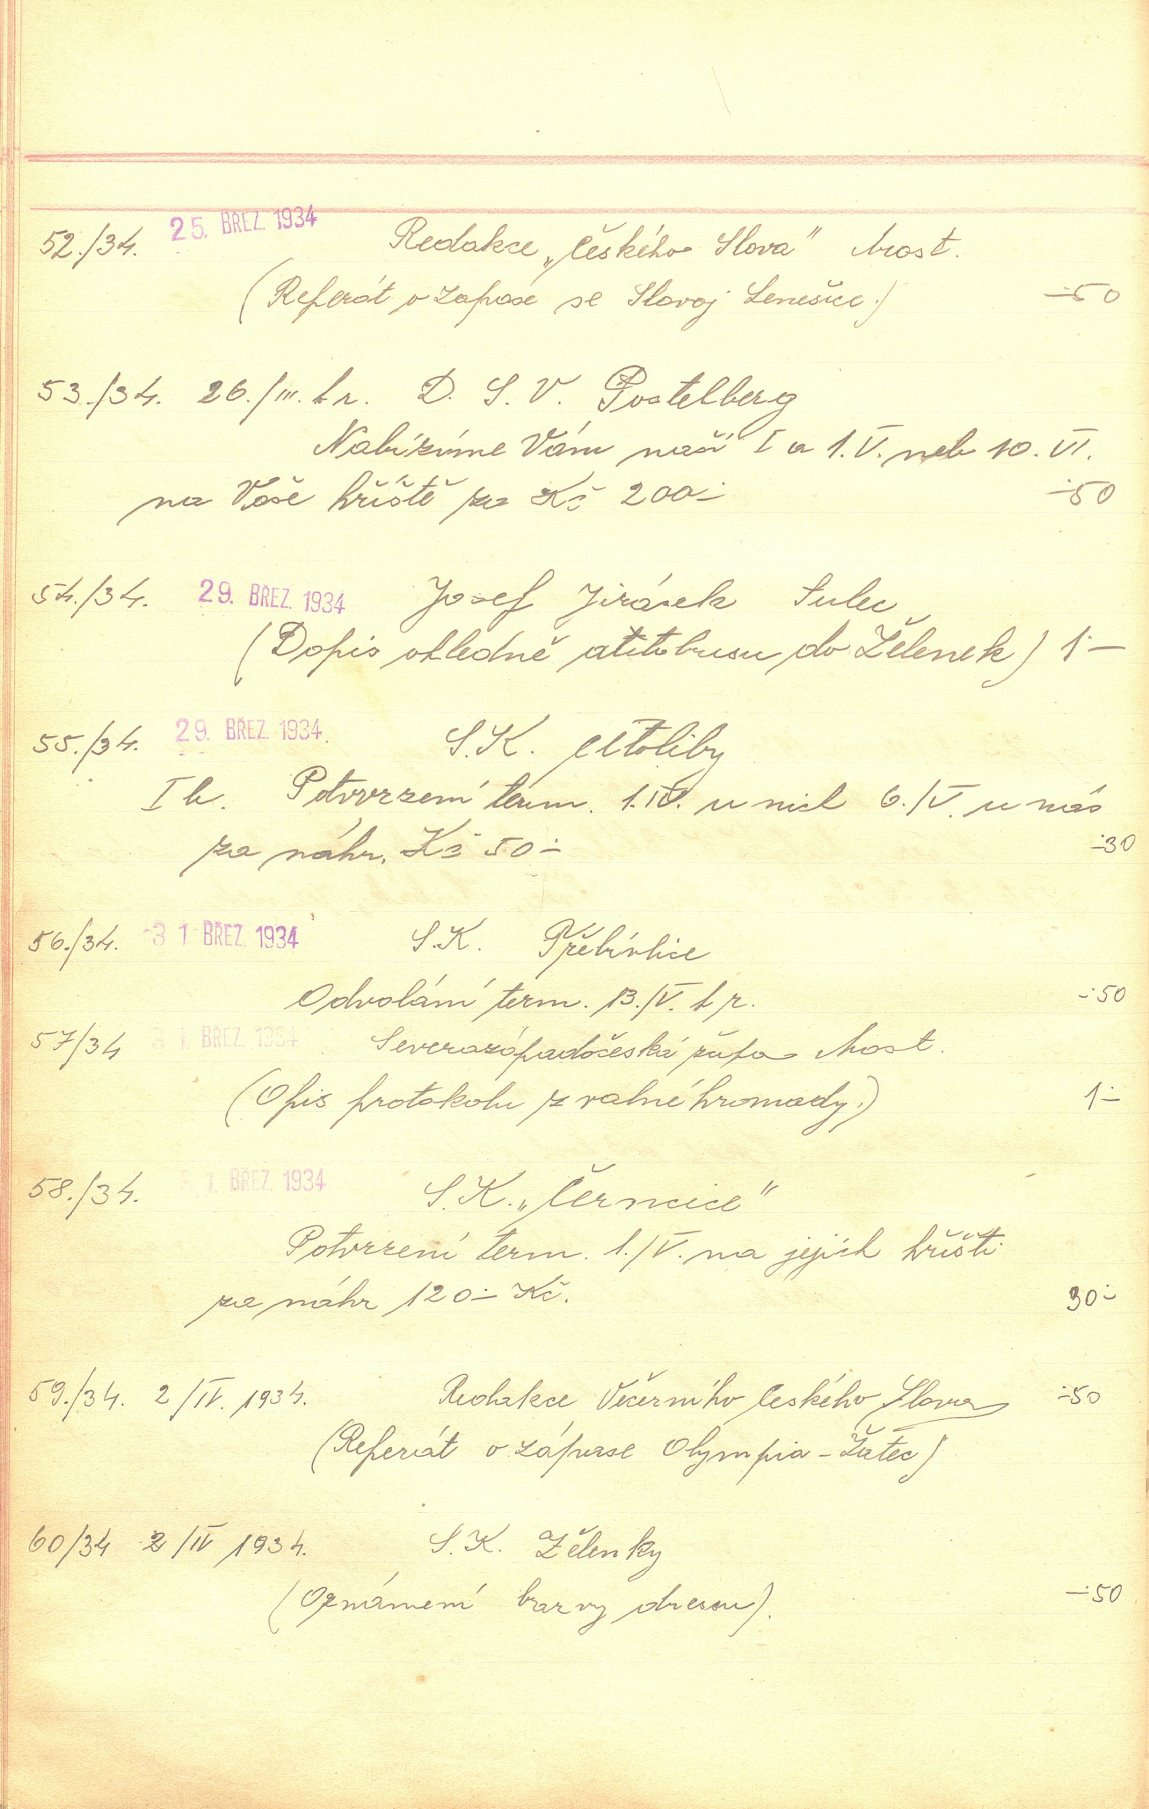 52./34. 25. BŘEZ. 1934 Redakce „Českého Slova" Most.
(Referát o zápase se Slavoj Lenešice.) –·50
53./34. 26./III. t r. D. S. V. Postelberg
Nabízíme Vám naší I a 1.V. neb 10. VI.
na Vaše hřiště za Kč 200·– –·50
54./34. 29. BŘEZ. 1934 Josef Jirásek Sulec
(Dopis ohledně autobusu do Želenek) 1·–
55./34. 29. BŘEZ. 1934 S.K. Cítoliby
I b. Potvrzení term. 1.IV. u nich 6./V. u nás
za náhr. Kč 50·– –·30
56./34. 31. BŘEZ. 1934 S.K. Třebívlice
Odvolání term. 13./V. t r. –·50
57/34 31. BŘEZ. 1934 Severozápadočeská župa Most.
(Opis protokolu z valné hromady.) 1·–
58./34. 31. BŘEZ. 1934 S.K. „Černcice"
Potvrzení term. 1./V. na jejich hřišti
za náhr 120·– Kč. 30·–
59./34. 2/IV. 1934. Redakce Večerního Českého Slova –·50
(Referát o zápase Olympia – Žatec)
60/34 2/IV 1934. S.K. Želenky
(Oznámení barvy dresu). –·50